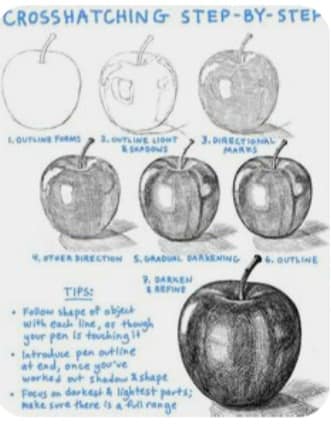 CROSSHATCHING STEP-BY-STEP
1. OUTLINE FORMS
2. OUTLINE LIGHT
& SHADOWS
3. DIRECTIONAL
MARKS
4. OTHER DIRECTION
5. GRADUAL DARKENING
6. OUTLINE
7. DARKEN
& REFINE
TIPS:
• Follow shape of object
with each line, as though
your pen is touching it
• Introduce pen outline
at end, once you've
worked out shadow & shape
• Focus on darkest & lightest parts;
make sure there is a full range